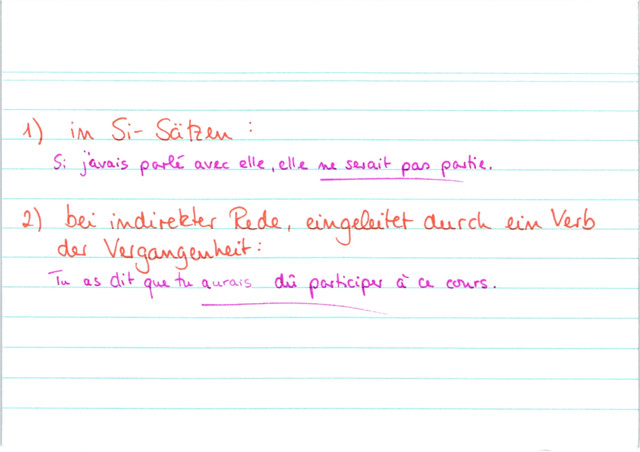 1) in Si-Sätzen :
Si j'avais parlé avec elle, elle ne serait pas partie.
2) bei indirekter Rede, eingeleitet durch ein Verb
der Vergangenheit :
Tu as dit que tu aurais dû participer à ce cours.